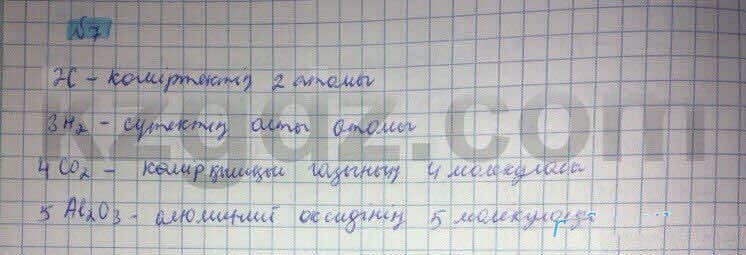 №7
2C - көміртектің 2 атомы
3H₂ - сутектің алты атомы
4CO₂ - көмірқышқыл газының 4 молекуласы
5Al₂O₃ - алюминий оксидінің 5 молекуласы
kzgdz.com